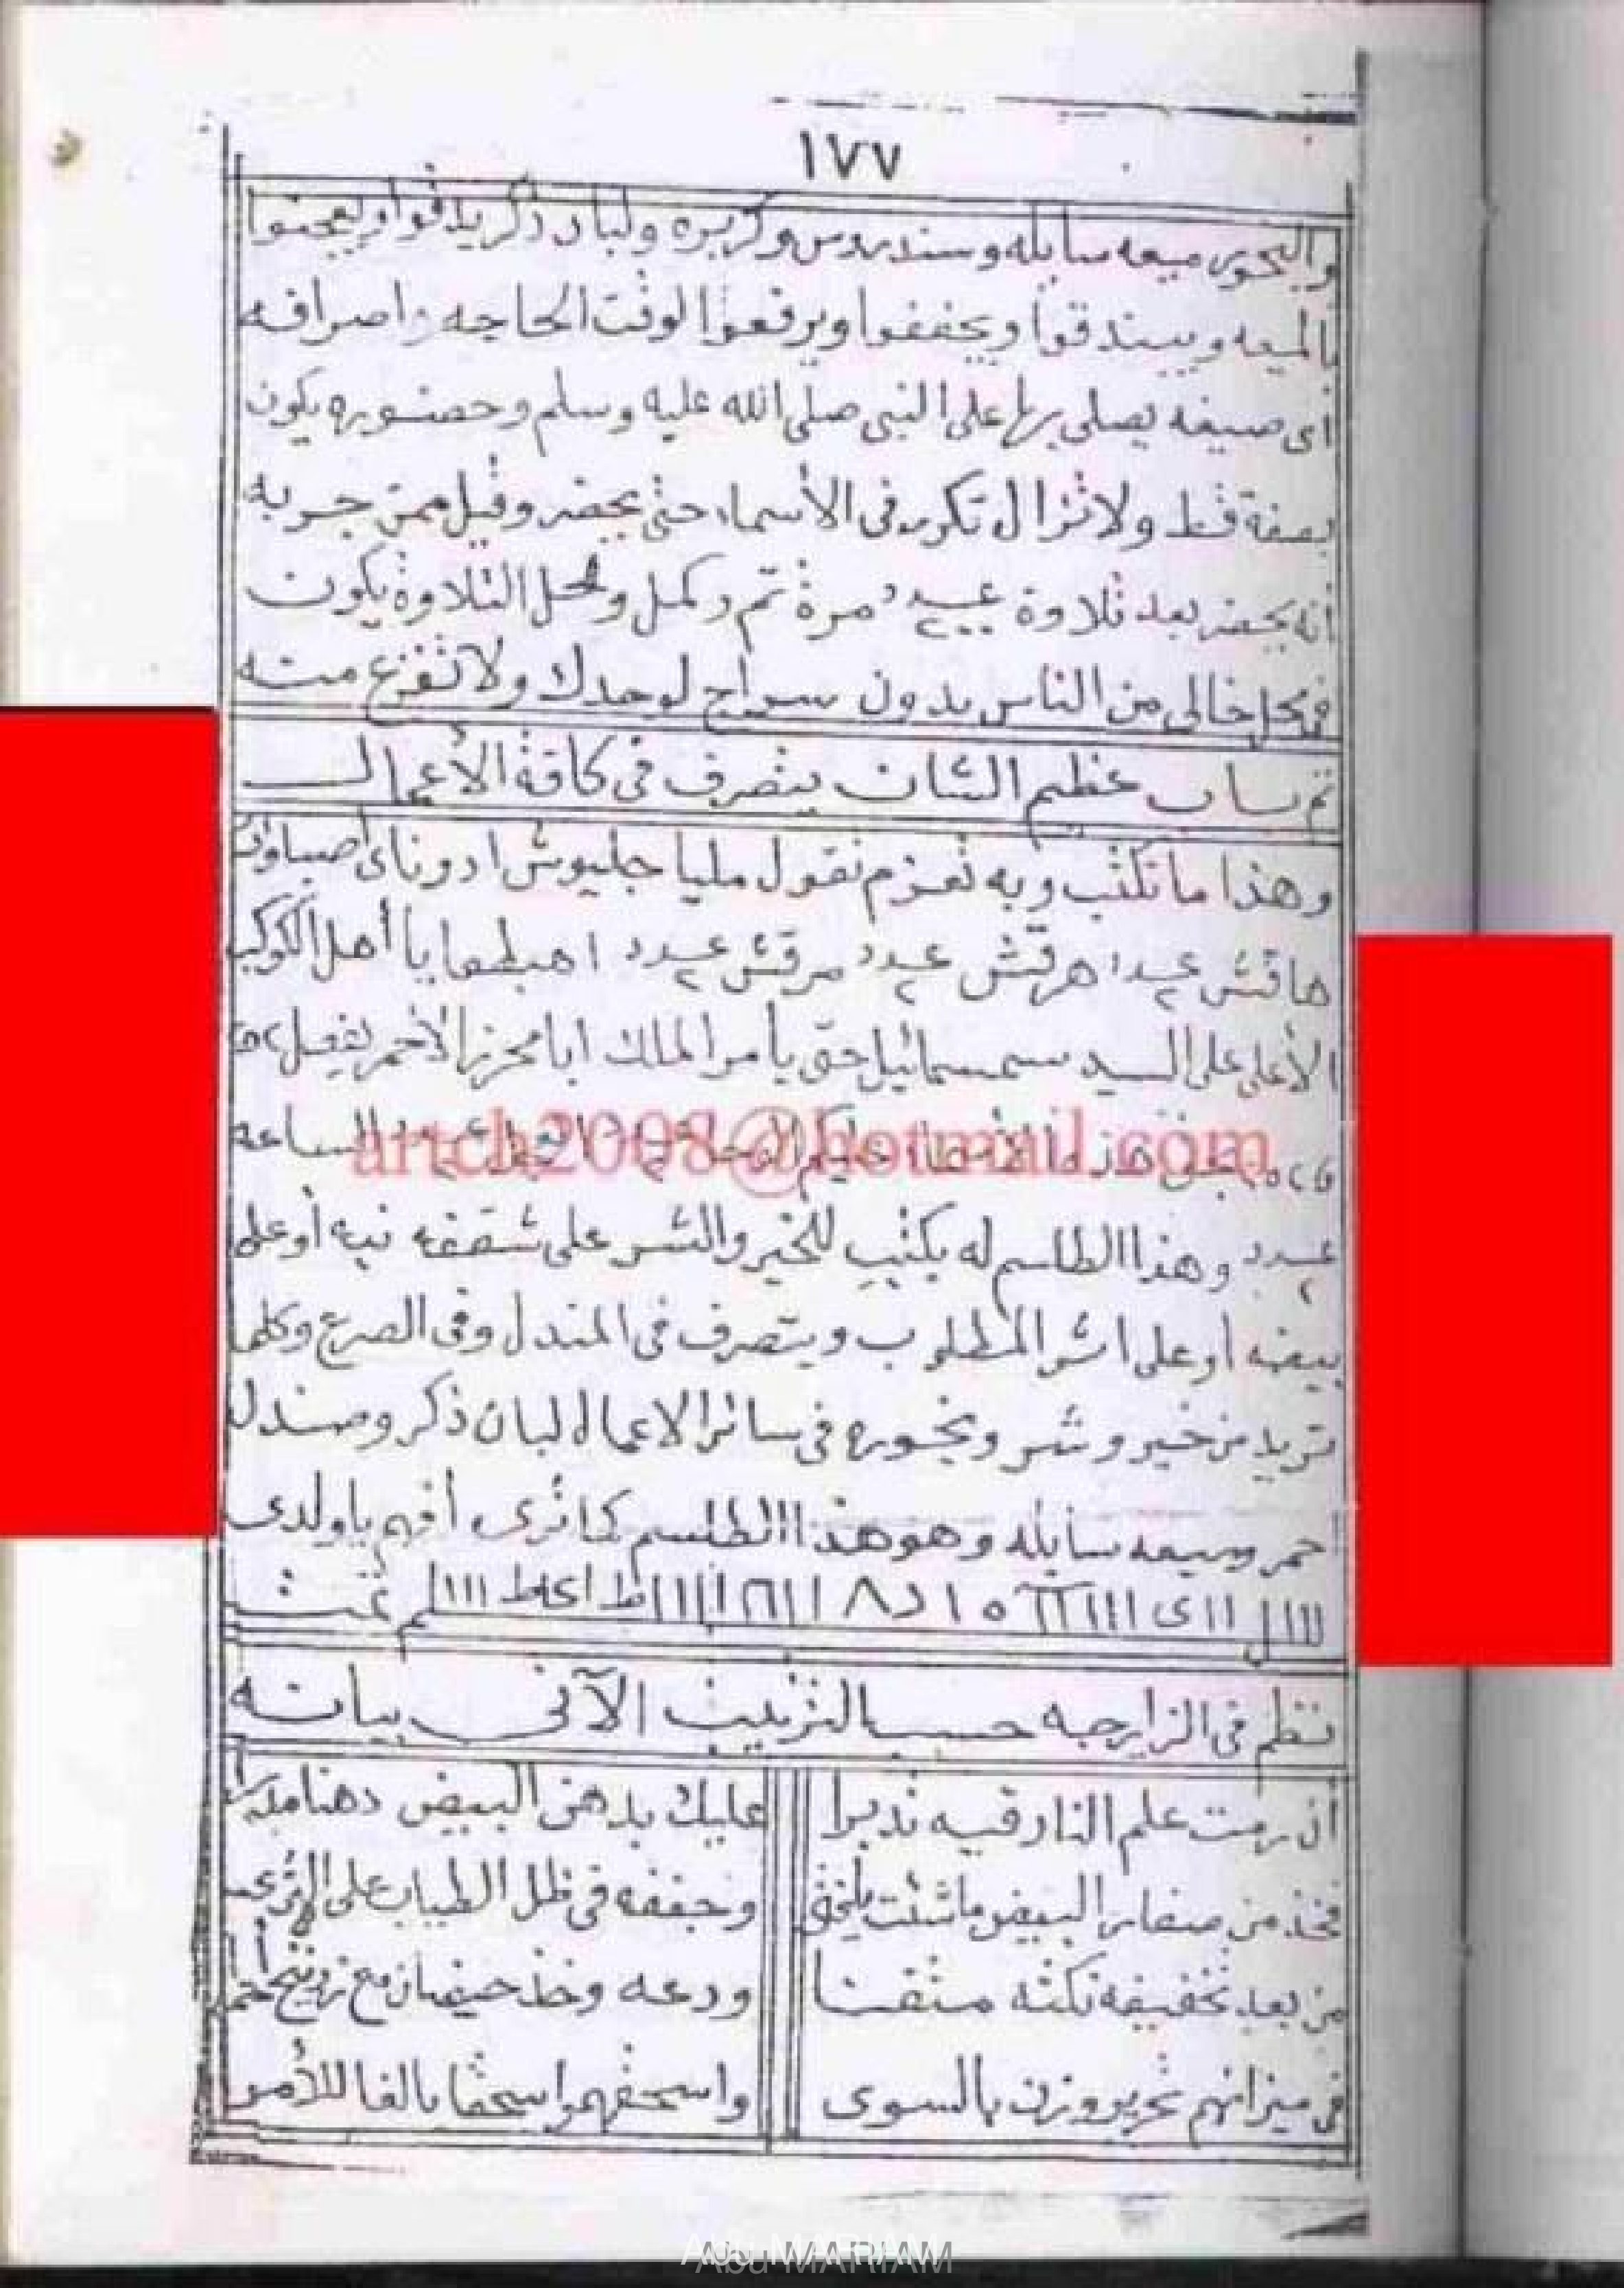 ١٧٧
والبخور ميعه سايله وسندروس وكزبره ولبان دكر يدقوا ويعجنوا
بالميعه ويبندقوا ويجففوا ويرفعوا لوقت الحاجه واصرافه
أى صيغه يصلى بها على النبى صلى الله عليه وسلم وحضوره يكون
بصفة قط ولا تزال تكرر فى الأسماء حتى يحضر وقيل ممن جربه
أنه يحضر بعد تلاوة مرة تم وكمل ومحل التلاوة يكون
فمحل خالى من الناس بدون سراج لوحدك ولا تفزع منه
عظيم الشان يتصرف فى كافة الأعمال
وهذا ما تكتب وبه تعزم تقول مليا جليوش ادوناى اصباوت
هاقش عدد هرقش عدد مرقش عدد اهبطوا يا أهل الكوكب
الأعلى على السيد سمسمائيل حتى يأمر الملك ابا محرز الأحمر بفعل
الساعه
عدد وهذا الطلسم له يكتب للخير والشر على شقفه نيه أو على
بيضه أو على اثر المطلوب ويتصرف فى المندل وفى الصرع وكلما
تريد من خير وشر وبخوره فى سائر الاعمال لبان ذكر وصندل
احمر وميعه سايله وهو هذا الطلسم كما ترى أفهم يا ولدى
تمت
نظم فى الزايرجه حسب الترتيب الآتى بيانه
ان رمت علم النار فيه تدبرا عليك بدهن البيض دهنا
فخذ من صفار البيض ما شئت وجففه فى ظل الطياب على
من بعد تخفيفه تكته متقنا ودعه وخذ مع زرنيخ احمر
فى ميزانهم تحرير وزن بالسوى واسحقهموا سحقا بالغا للأمر
artch2008@hotmail.com
Abu MARIAM